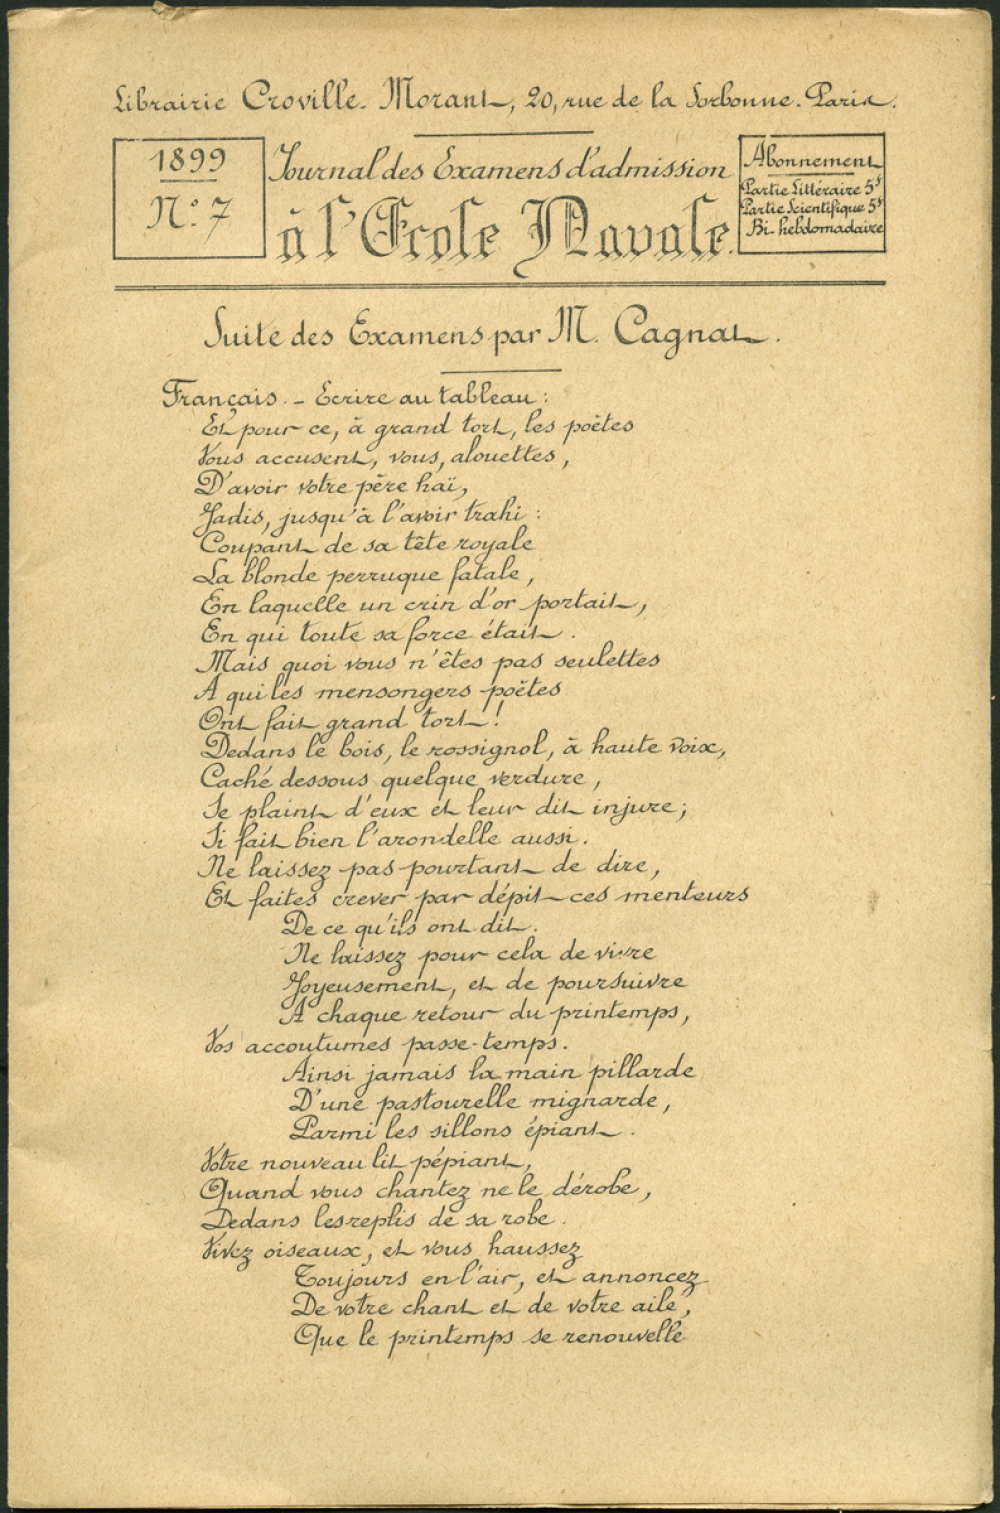 Librairie Croville-Morant, 20, rue de la Sorbonne. Paris.
1899
N° 7
Journal des Examens d'admission
à l'Ecole Navale.
Abonnement
Partie Littéraire 5f
Partie Scientifique 5f
Bi-hebdomadaire
Suite des Examens par M. Cagnat.
Français. - Ecrire au tableau :
Et pour ce, à grand tort, les poètes
Vous accusent, vous, alouettes,
D'avoir votre père haï,
Jadis, jusqu'à l'avoir trahi :
Coupant de sa tête royale
La blonde perruque fatale,
En laquelle un crin d'or portait,
En qui toute sa force était.
Mais quoi vous n'êtes pas seulettes
A qui les mensongers poètes
Ont fait grand tort !
Dedans le bois, le rossignol, à haute voix,
Caché dessous quelque verdure,
Se plaint d'eux et leur dit injure ;
Si fait bien l'arondelle aussi.
Ne laissez pas pourtant de dire,
Et faites crever par dépit ces menteurs
De ce qu'ils ont dit.
Ne laissez pour cela de vivre
Joyeusement, et de poursuivre
A chaque retour du printemps,
Vos accoutumes passe-temps.
Ainsi jamais la main pillarde
D'une pastourelle mignarde,
Parmi les sillons épiant.
Votre nouveau lit pépiant,
Quand vous chantez ne le dérobe,
Dedans les replis de sa robe.
Vivez oiseaux, et vous haussez
Toujours en l'air, et annoncez
De votre chant et de votre aile,
Que le printemps se renouvelle